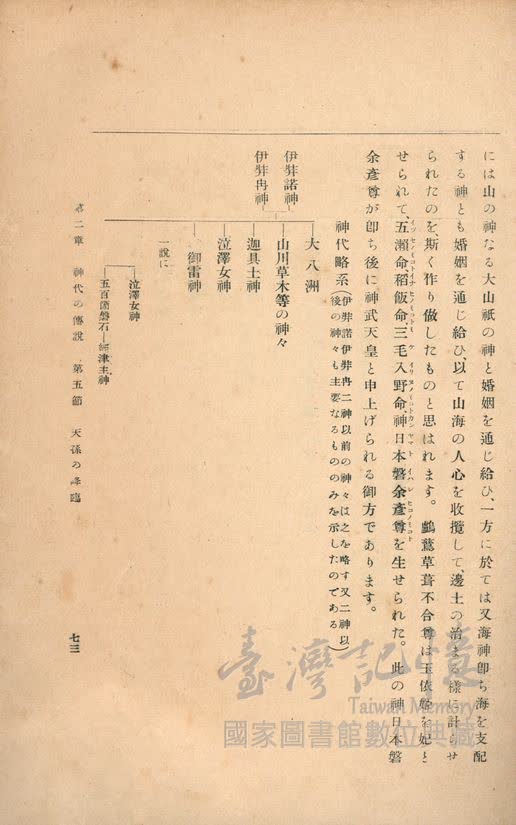 には山の神なる大山祇の神と婚姻を通じ給ひ、一方に於ては又海神卽ち海を支配
する神とも婚姻を通じ給ひ、以て山海の人心を收攬して、邊土の治まる樣に計らせ
られたのを、斯く作り做したものと思はれます。鸕鶿草葺不合尊は玉依姬を妃と
せられて、五瀨命、稻飯命、三毛入野命、神日本磐余彥尊を生せられた。此の神日本磐
余彥尊が卽ち後に神武天皇と申上げられる御方であります。
神代略系(伊弉諾伊弉冉二神以前の神々は之を略す又二神以
後の神々も主要なるもののみを示したのである)
伊弉諾神
伊弉冉神
大八洲
山川草木等の神々
迦具土神
泣澤女神
御雷神
一說に
泣澤女神
五百箇磐石―經津主神
第二章 神代の傳說 第五節 天孫の降臨
七三
臺灣記憶
Taiwan Memory
國家圖書館數位典藏